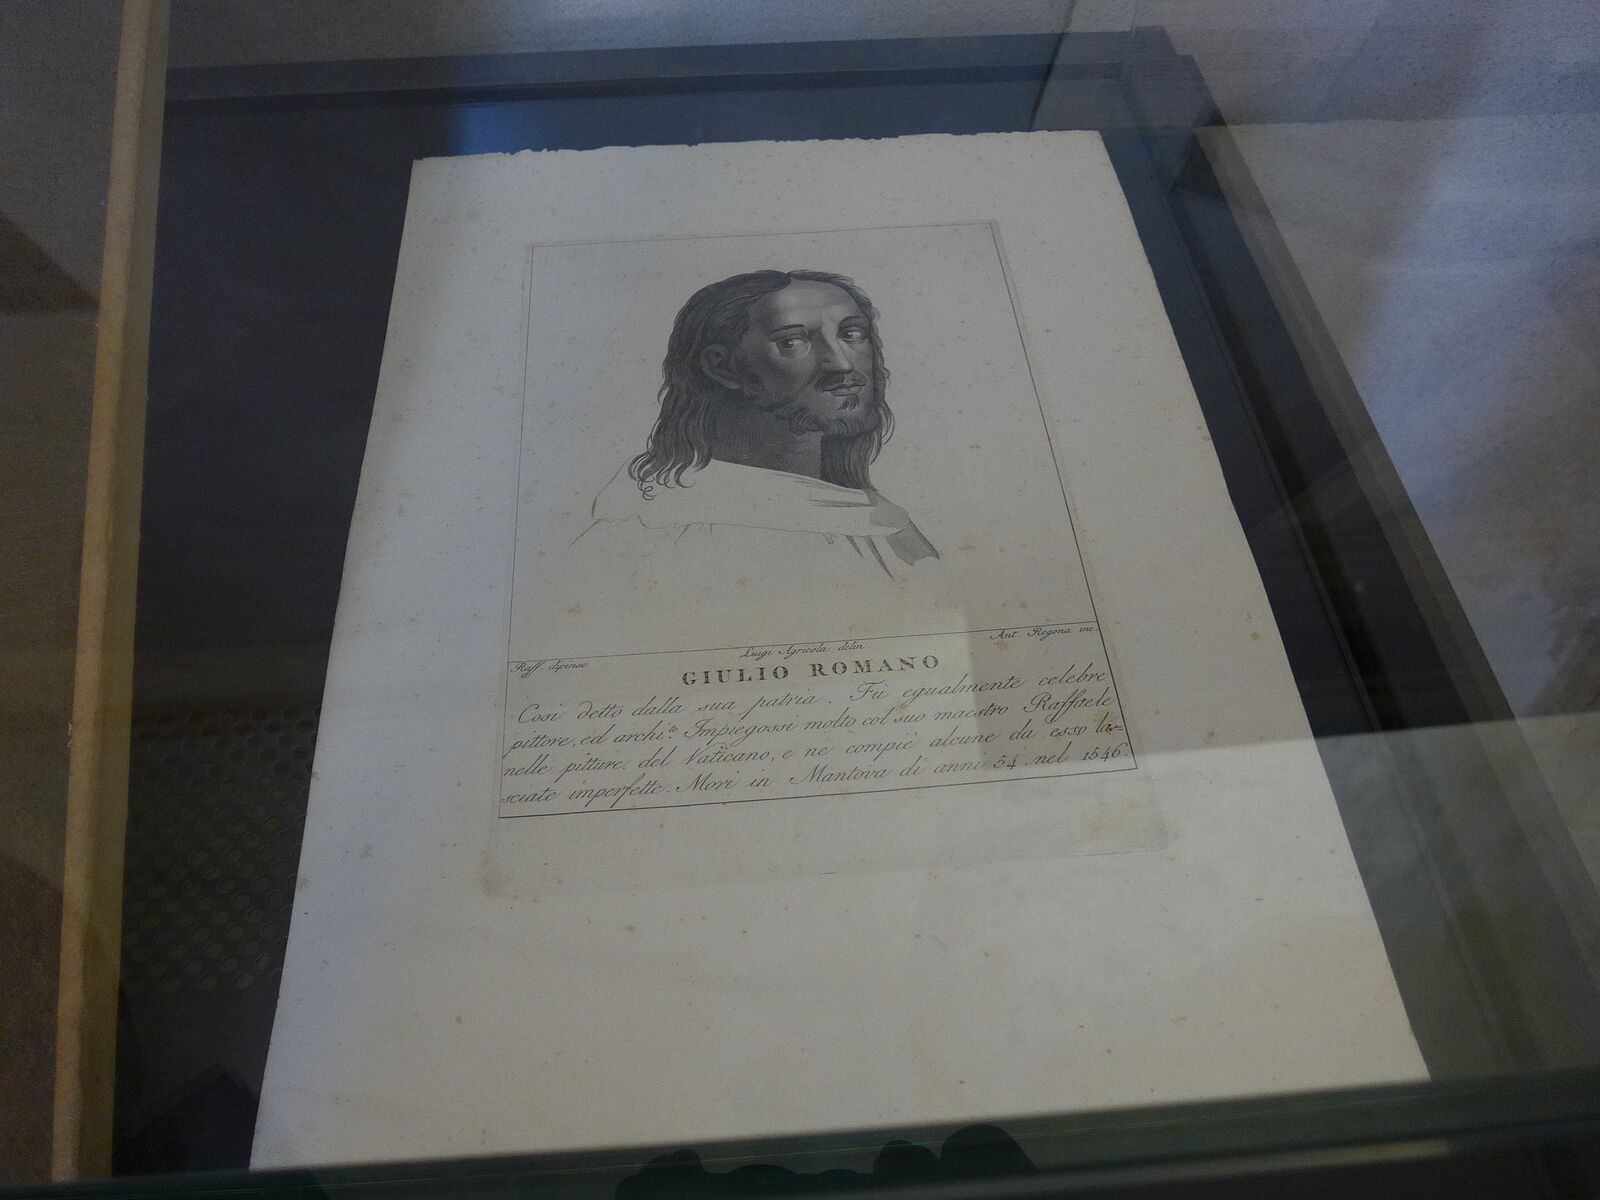 Raff. dipinse
Luigi Agricola delin.
Ant. Regona inc.
GIULIO ROMANO
Così detto dalla sua patria. Fù egualmente celebre
pittore, ed archi.to Impiegossi molto col suo maestro Raffaele
nelle pitture del Vaticano, e ne compiè alcune da esso la=
sciate imperfette. Morì in Mantova di anni 54. nel 1546.